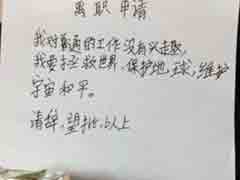 离职申请
我对普通的工作没有兴趣,
我要拯救世界、保护地球,维护
宇宙和平。
请辞,望批,以上